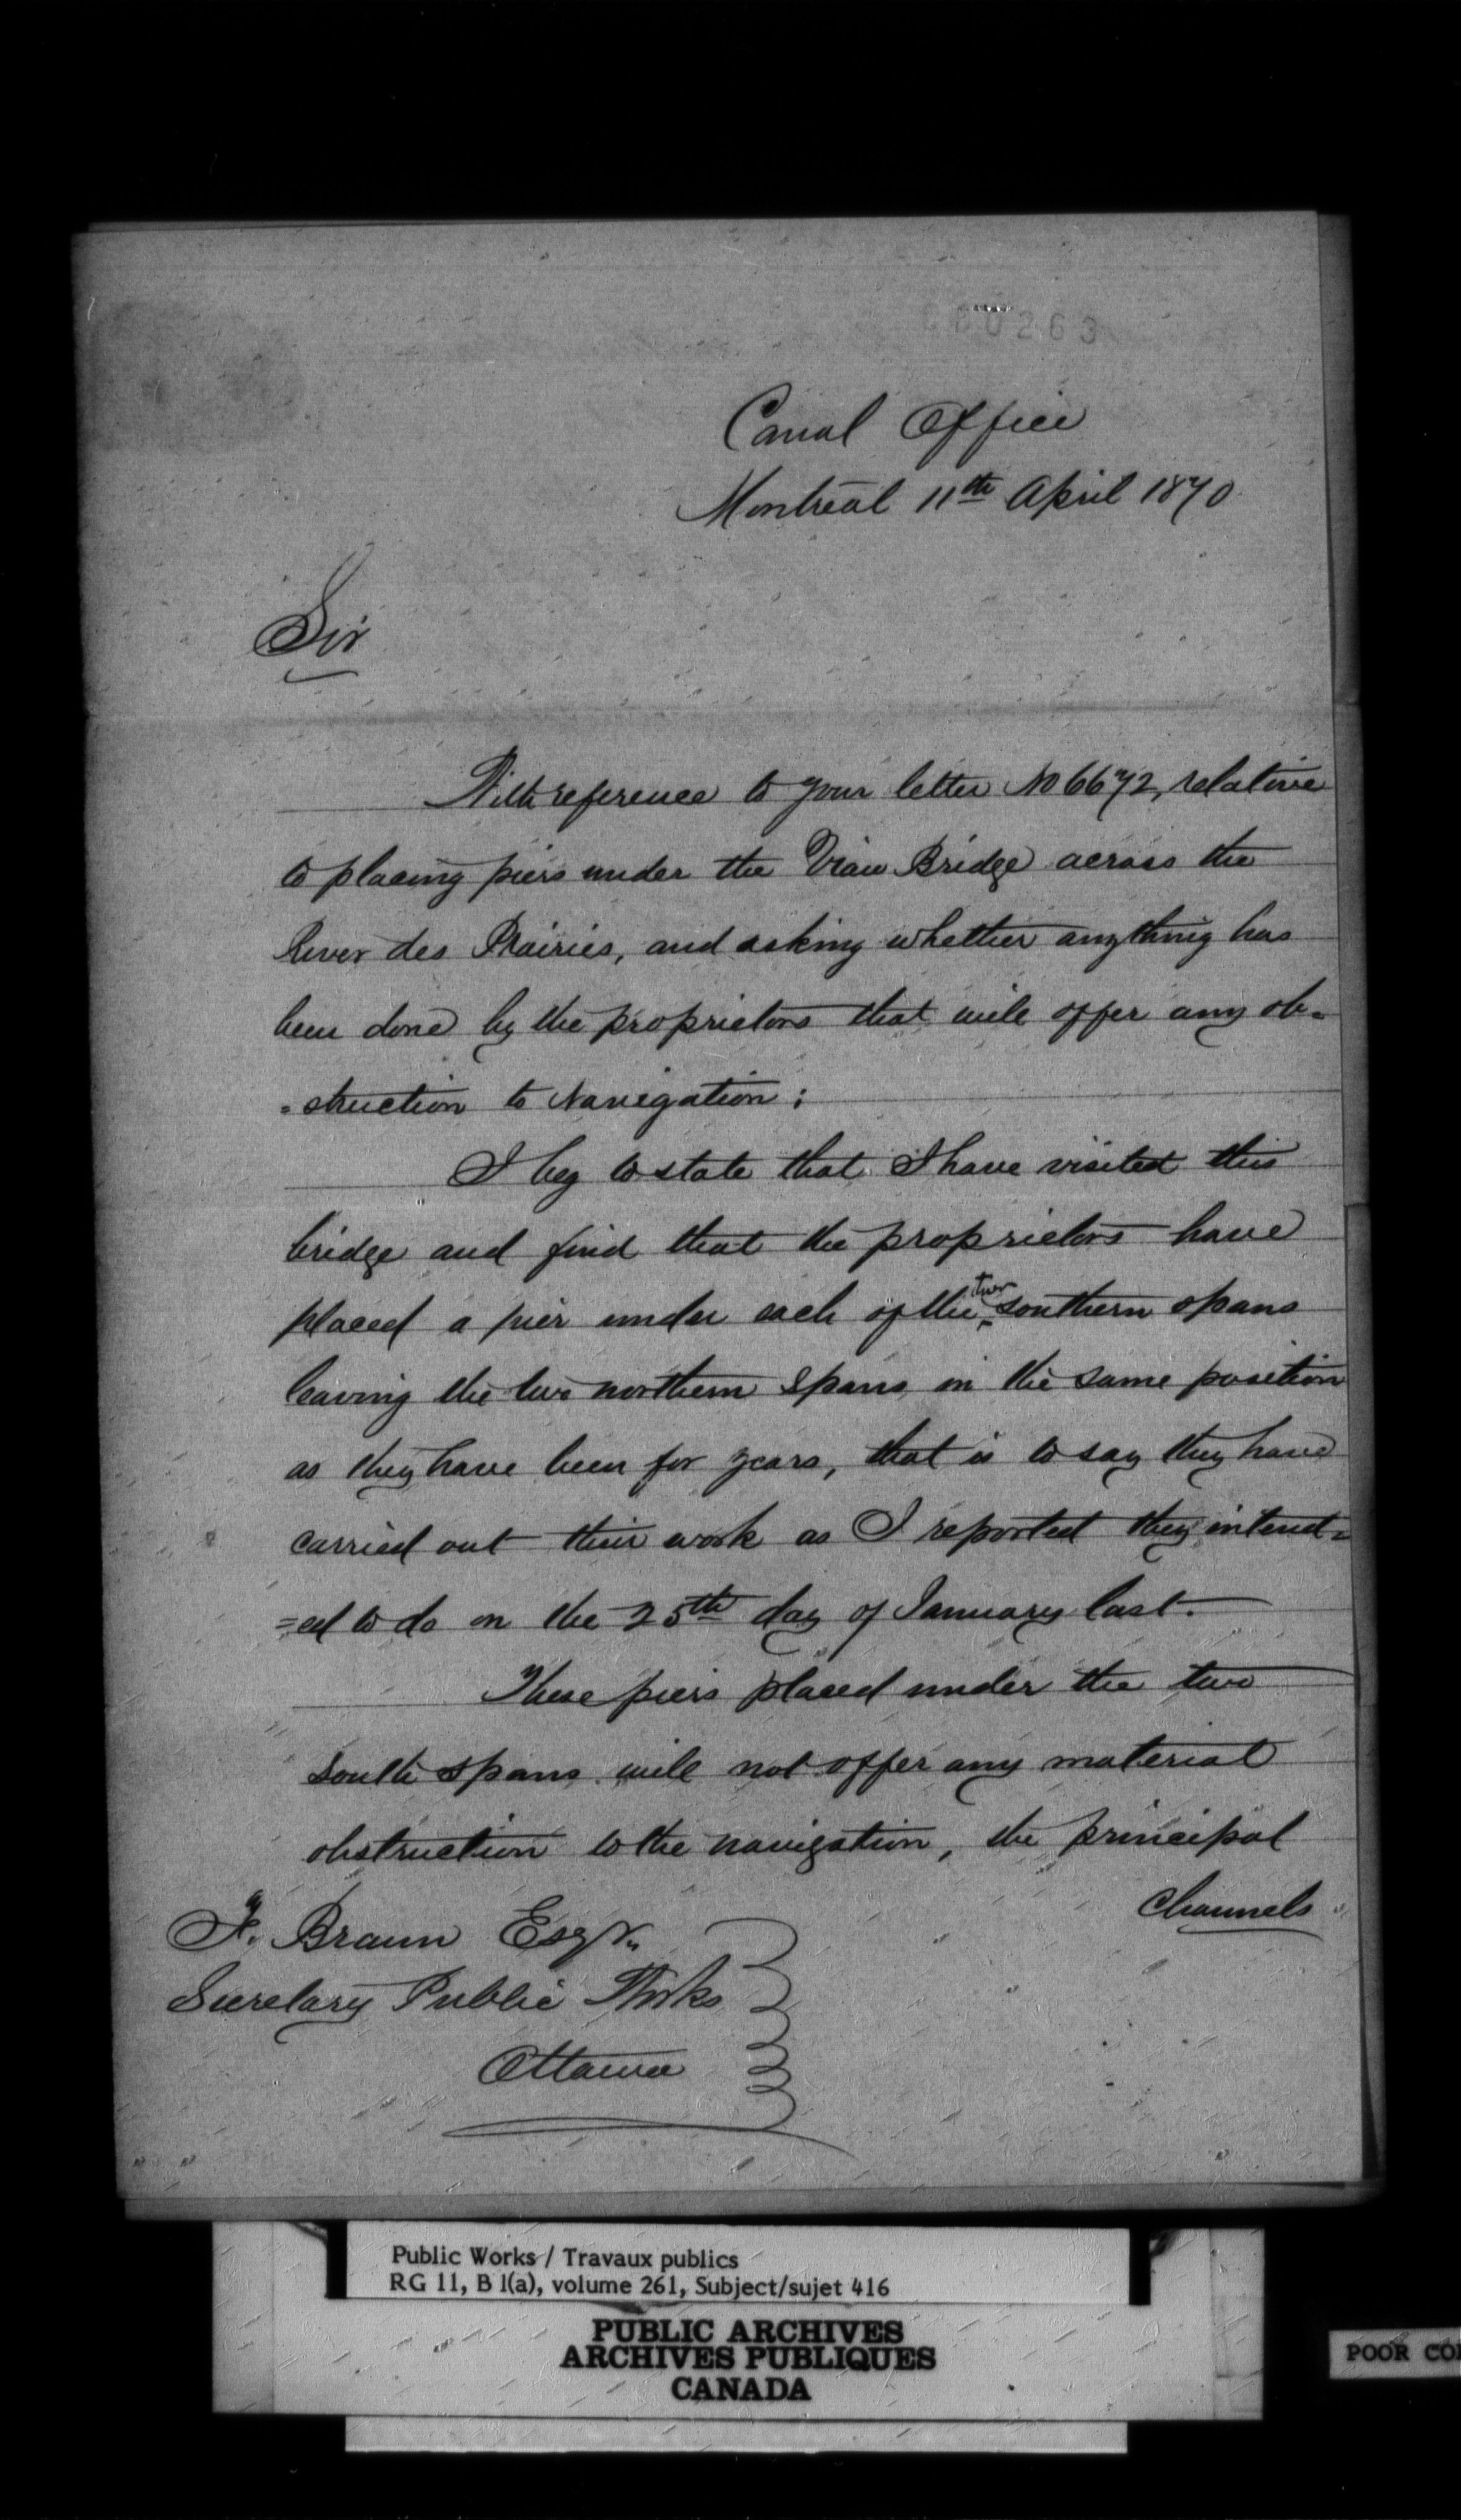 Canal Office
Montreal 11th April 1870
Sir
With reference to your letter No 6672, relative
to placing piers under the Viau Bridge across the
River des Prairies, and asking whether anything has
been done by the proprietors that will offer any ob=
=struction to Navigation;
I beg to state that I have visited this
bridge and find that the proprietors have
placed a pier under each of the two southern spans
leaving the two northern spans in the same position
as they have been for years, that is to say they have
carried out their work as I reported they intend=
=ed to do on the 25th day of January last.
These piers placed under the two
South spans will not offer any material
obstruction to the navigation, the principal
Channels
F. Braun Esqr.
Secretary Public Works
Ottawa
Public Works / Travaux publics
RG 11, B 1(a), volume 261, Subject/sujet 416
PUBLIC ARCHIVES
ARCHIVES PUBLIQUES
CANADA
POOR CO